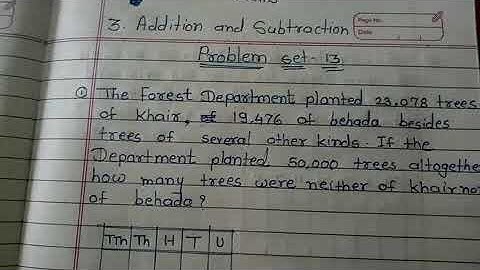 3. Addition and Subtraction
Page No.
Date
Problem set - 13
① The Forest Department planted 23,078 trees
of khair, of 19,476 of behada besides
trees of several other kinds. If the
Department planted 50,000 trees altogethe
how many trees were neither of khair nor
of behada?
TTh Th H T U